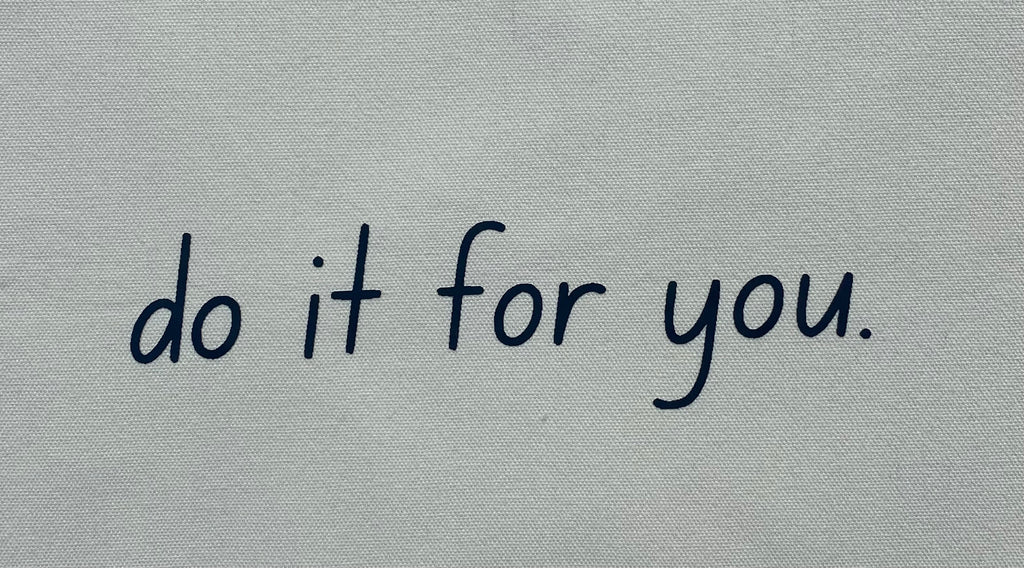 do it for you.